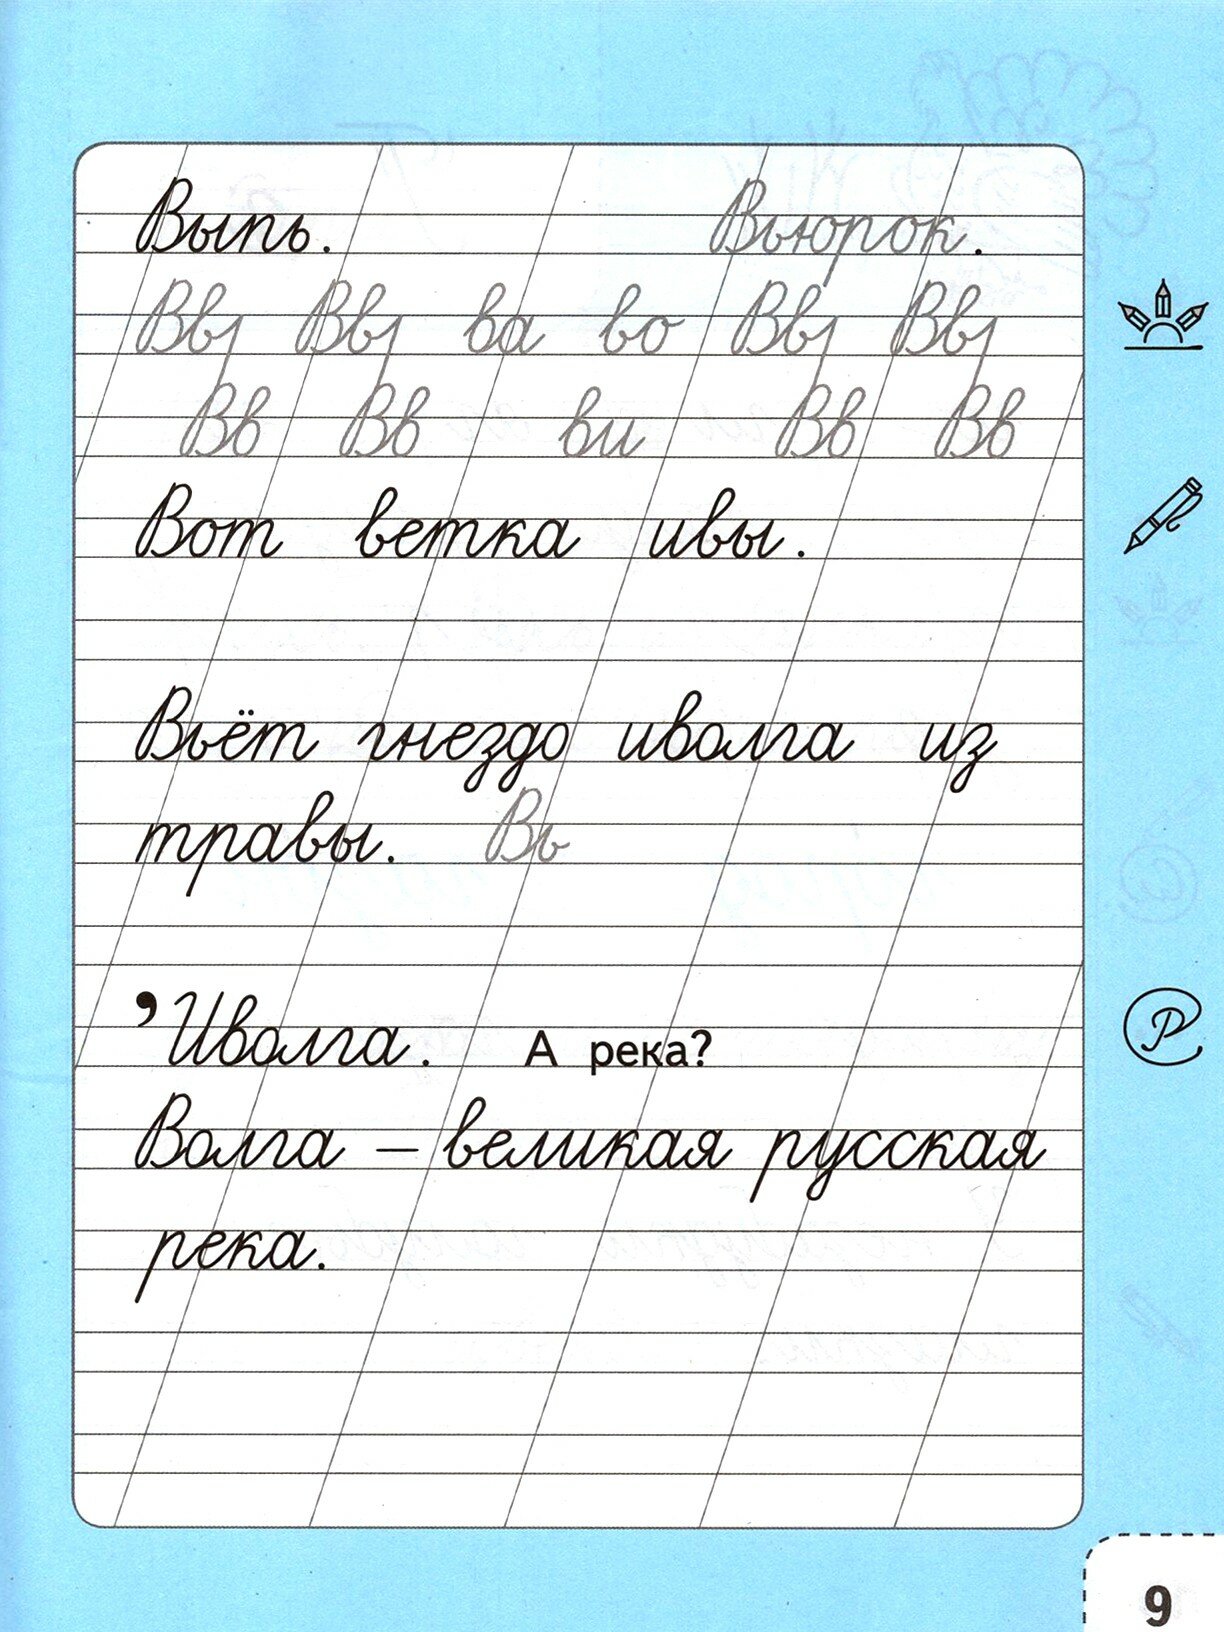 Выпь. Вьюрок.
Вв Вв ва во Вв Вв
Вв Вв ви Вв Вв
Вот ветка ивы.
Вьёт гнездо иволга из
травы. Вь
’Иволга. А река?
Волга – великая русская
река.
Р
9